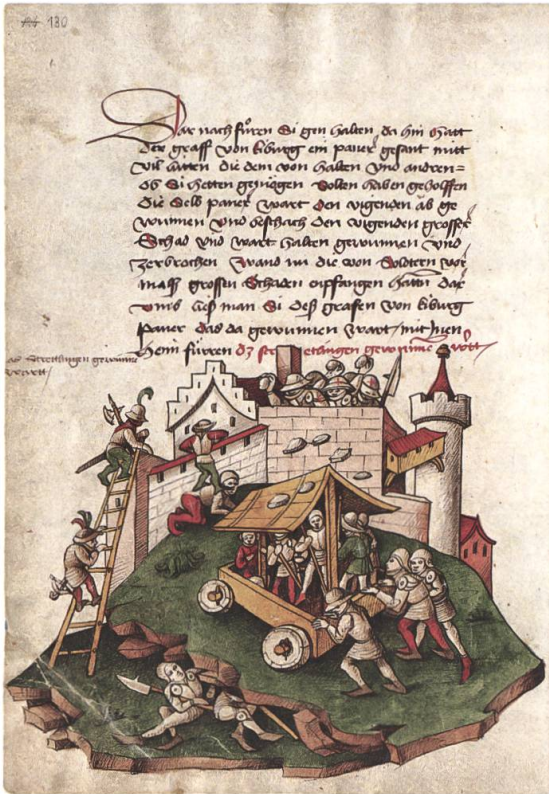 180
Dar nach fůren Si gen halten da hin hatt
der graff von kiburg ein paner gesant mitt
vil lütten die dem von halten vnd andren=
ob Si hetten gemögen solten haben geholffen
Die selb paner wart den vigenden ab ge
wunnen vnd beschach den vigenden grosser
Schad vnd wart halten gewunnen vnd
zerbrochen wand nu die von Soldtern vor
mals grossen Schaden enpfangen hattn dar
vmb ließ man Si deß grafen von kiburg
paner das da gewunnen wart mit inen
heim fürren dz stretlingen gewunnē wart
Strettlingen gewunne